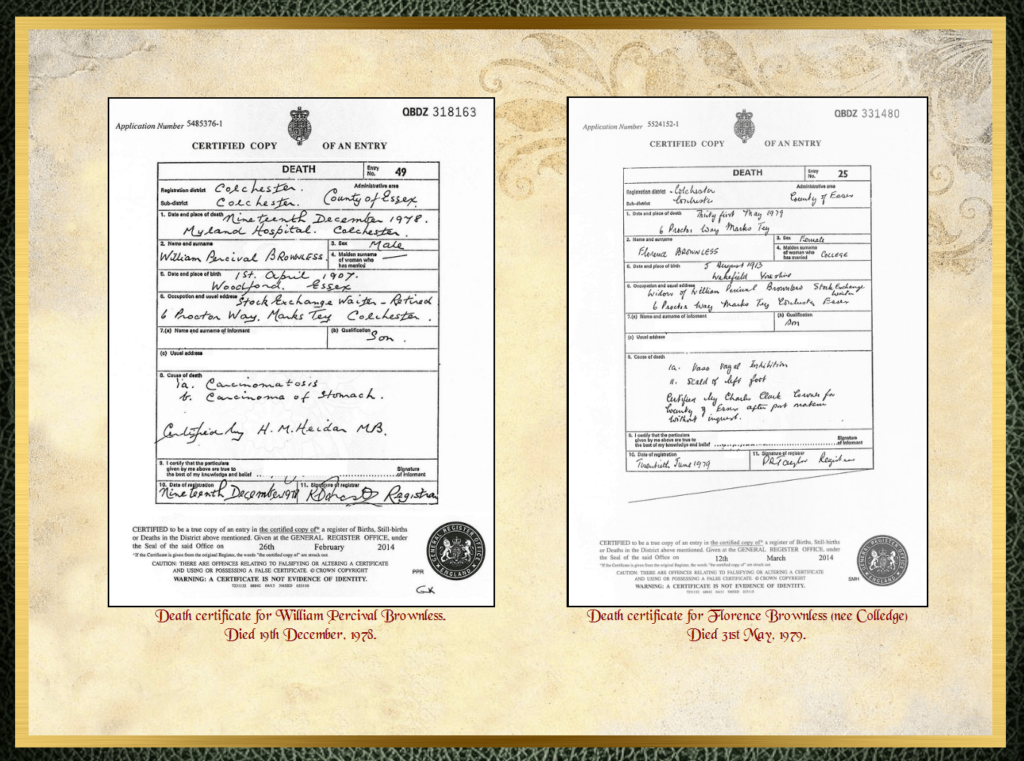 Application Number 5485376-1
QBDZ 318163
CERTIFIED COPY OF AN ENTRY
DEATH
Entry No. 49
Registration district Colchester.
Administrative area
Sub-district Colchester.
County of Essex
1. Date and place of death
Nineteenth December 1978.
Myland Hospital. Colchester.
2. Name and surname
William Percival BROWNLESS
3. Sex Male
4. Maiden surname
of woman who
has married —
5. Date and place of birth 1st. April 1907.
Woodford. Essex
6. Occupation and usual address Stock Exchange Waiter - Retired
6 Proctor Way, Marks Tey Colchester.
7.(a) Name and surname of informant
(b) Qualification
Son.
(c) Usual address
8. Cause of death
1a. Carcinomatosis
b. Carcinoma of stomach.
Certified by H.M. MB.
9. I certify that the particulars
given by me above are true to
the best of my knowledge and belief
Signature
of informant
10. Date of registration
Nineteenth December 1978
11. Signature of registrar
Registrar
CERTIFIED to be a true copy of an entry in the certified copy of* a register of Births, Still-births
or Deaths in the District above mentioned. Given at the GENERAL REGISTER OFFICE, under
the Seal of the said Office on 26th February 2014
*If the Certificate is given from the original Register, the words "the certified copy of" are struck out
CAUTION: THERE ARE OFFENCES RELATING TO FALSIFYING OR ALTERING A CERTIFICATE
AND USING OR POSSESSING A FALSE CERTIFICATE. © CROWN COPYRIGHT
WARNING: A CERTIFICATE IS NOT EVIDENCE OF IDENTITY.
PPR
GENERAL REGISTER OFFICE
ENGLAND
Death certificate for William Percival Brownless.
Died 19th December, 1978.
Application Number 5524152-1
QBDZ 331480
CERTIFIED COPY OF AN ENTRY
DEATH
Entry No. 25
Registration district Colchester
Administrative area
Sub-district Colchester
County of Essex
1. Date and place of death Thirty first May 1979
6 Proctor Way Marks Tey
2. Name and surname
Florence BROWNLESS
3. Sex Female
4. Maiden surname
of woman who
has married COLLEGE
5. Date and place of birth 5 August 1913
Wakefield Yorkshire
6. Occupation and usual address
Widow of William Percival Brownless Stock Exchange
Waiter
6 Proctor Way Marks Tey Colchester Essex
7.(a) Name and surname of informant
(b) Qualification
Son
(c) Usual address
8. Cause of death
1a. Vaso Vagal Inhibition
II. Scald of left foot
Certified by Charles Clark Coroner for
County of Essex after post mortem
without inquest.
9. I certify that the particulars
given by me above are true to
the best of my knowledge and belief
Signature
of informant
10. Date of registration
Twentieth June 1979
11. Signature of registrar
Registrar
CERTIFIED to be a true copy of an entry in the certified copy of* a register of Births, Still-births
or Deaths in the District above mentioned. Given at the GENERAL REGISTER OFFICE, under
the Seal of the said Office on 12th March 2014
*If the Certificate is given from the original Register, the words "the certified copy of" are struck out
CAUTION: THERE ARE OFFENCES RELATING TO FALSIFYING OR ALTERING A CERTIFICATE
AND USING OR POSSESSING A FALSE CERTIFICATE. © CROWN COPYRIGHT
WARNING: A CERTIFICATE IS NOT EVIDENCE OF IDENTITY.
SMH
GENERAL REGISTER OFFICE
ENGLAND
Death certificate for Florence Brownless (nee Colledge)
Died 31st May, 1979.